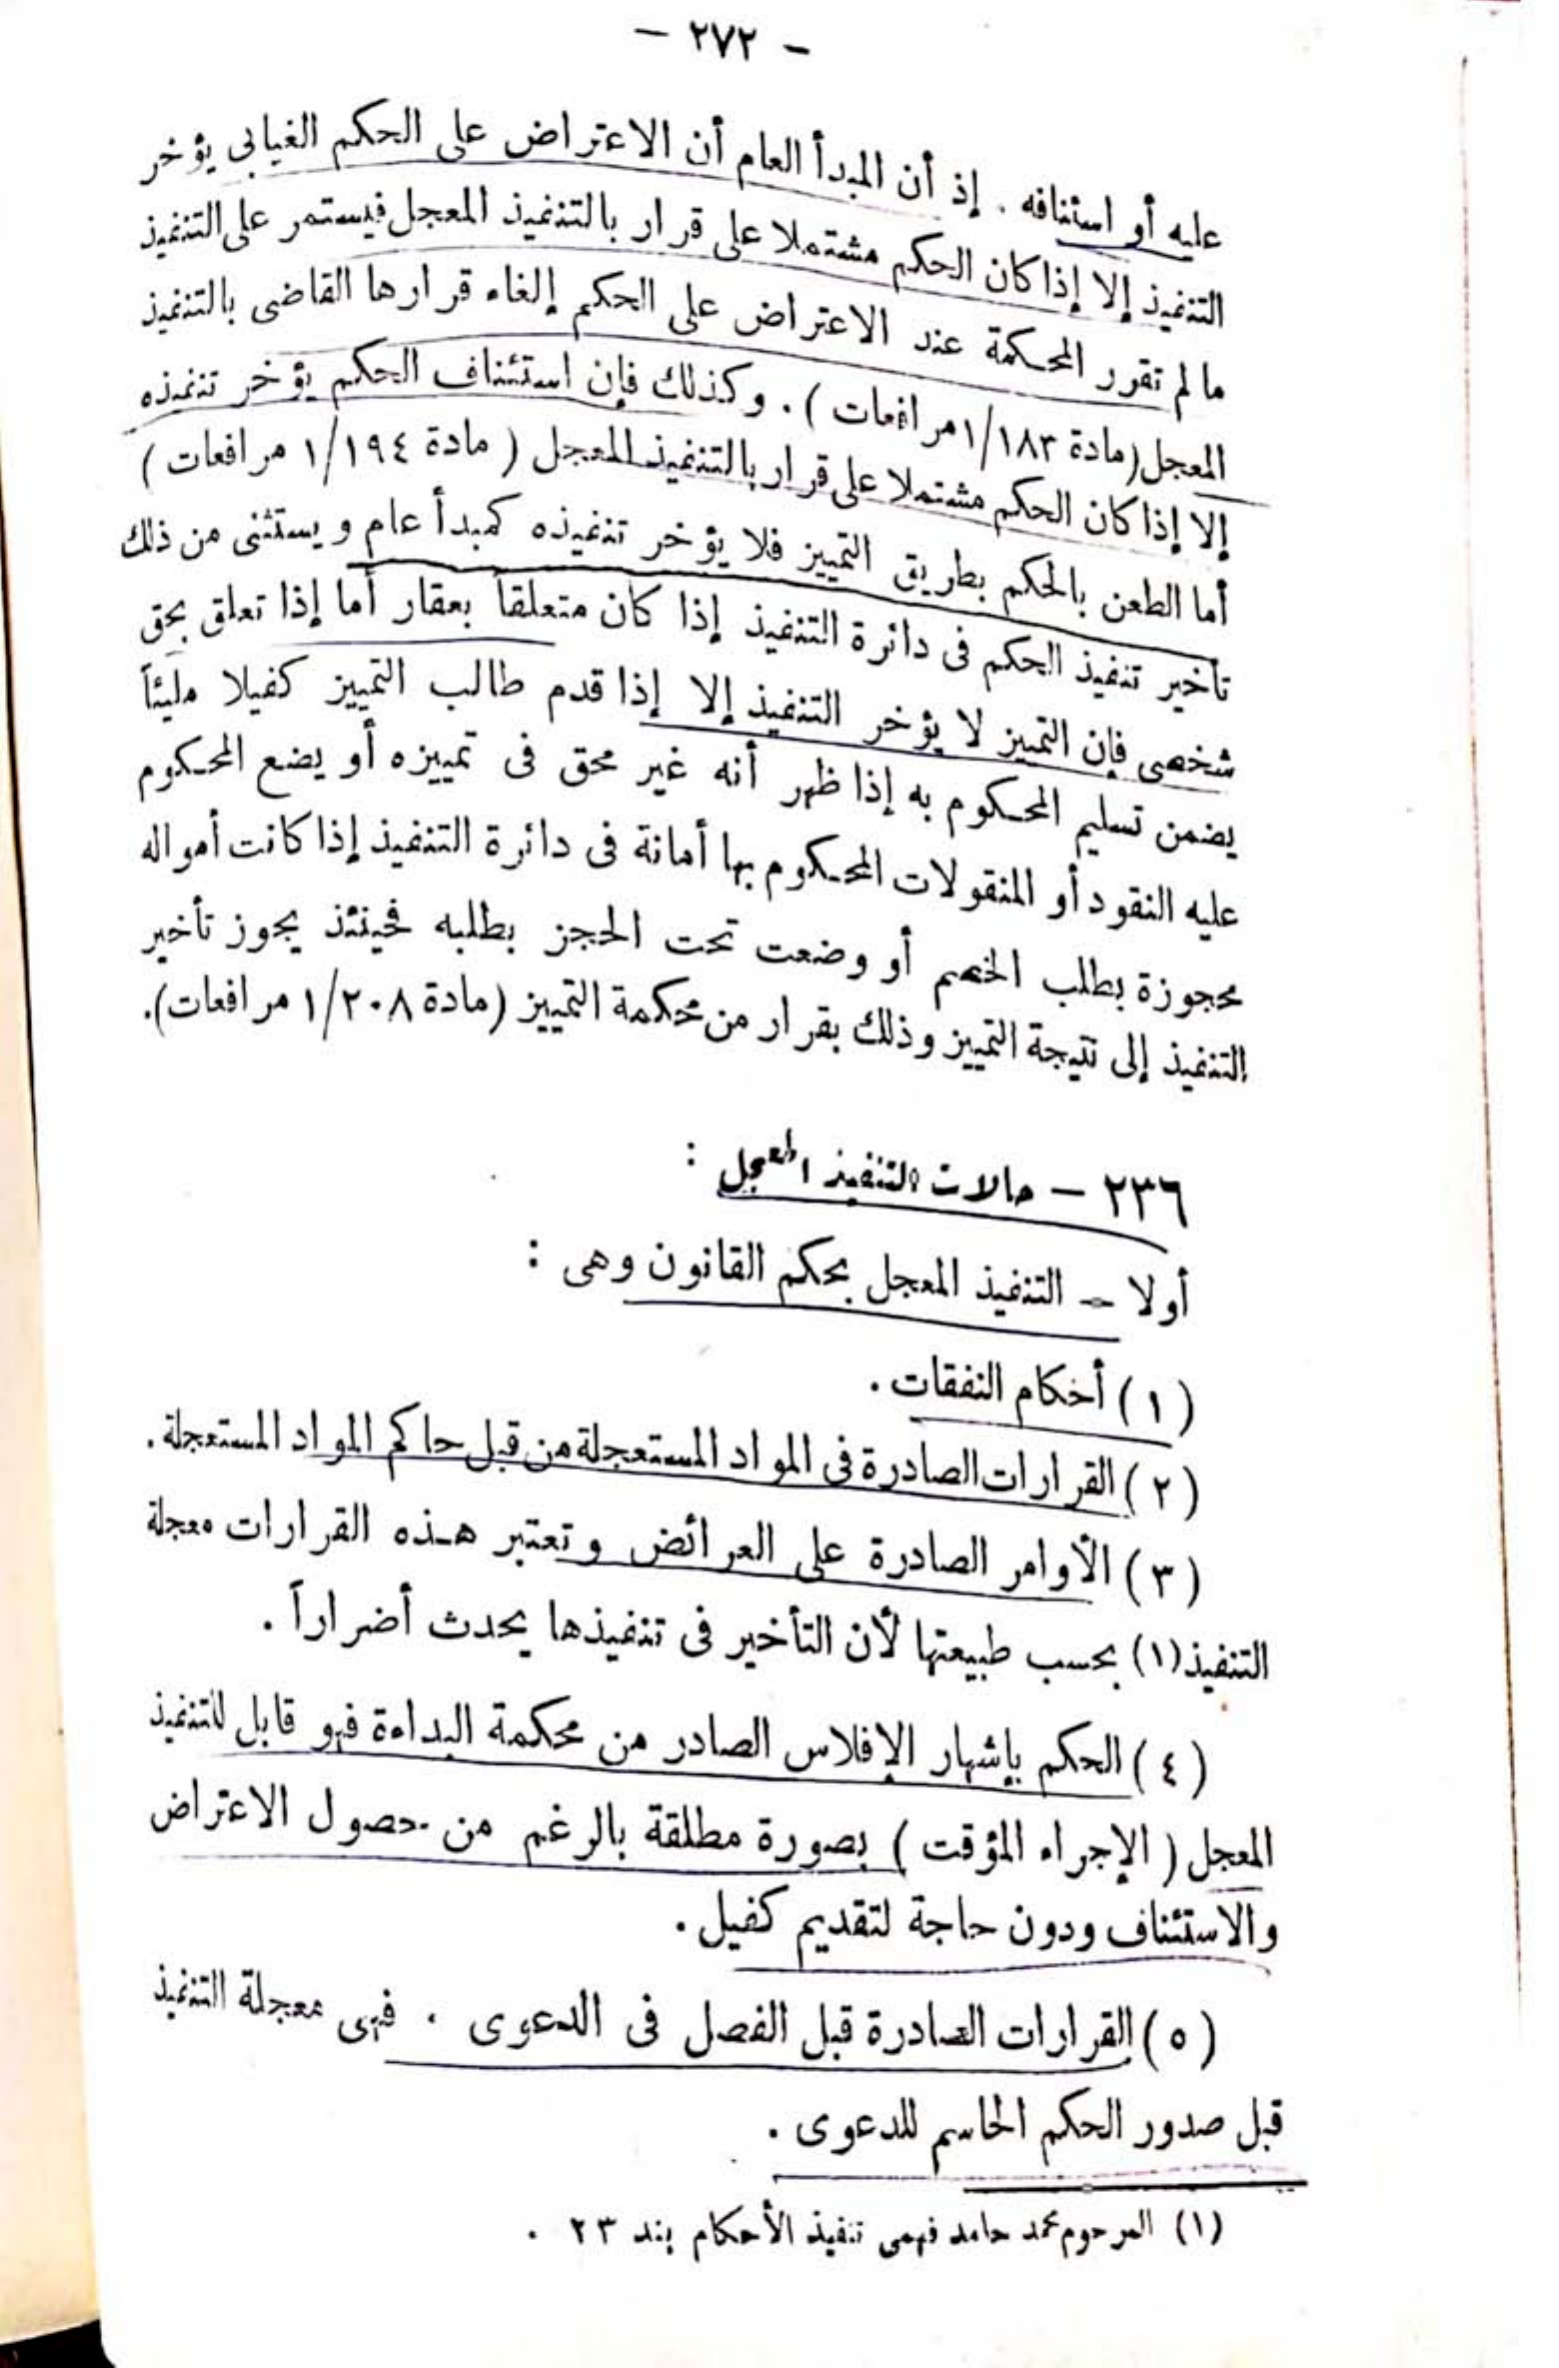 — ٢٧٢ —
عليه أو استئنافه . إذ أن المبدأ العام أن الاعتراض على الحكم الغيابى يؤخر
التنفيذ إلا إذا كان الحكم مشتملا على قرار بالتنفيذ المعجل فيستمر على التنفيذ
ما لم تقرر المحكمة عند الاعتراض على الحكم إلغاء قرارها القاضى بالتنفيذ
المعجل (مادة ١/١٨٣ مرافعات) . وكذلك فإن استئناف الحكم يؤخر تنفيذه
إلا إذا كان الحكم مشتملا على قرار بالتنفيذ المعجل ( مادة ١/١٩٤ مرافعات )
أما الطعن بالحكم بطريق التمييز فلا يؤخر تنفيذه كمبدأ عام ويستثنى من ذلك
تأخير تنفيذ الحكم فى دائرة التنفيذ إذا كان متعلقاً بعقار أما إذا تعلق بحق
شخصى فإن التمييز لا يؤخر التنفيذ إلا إذا قدم طالب التمييز كفيلا مليئاً
يضمن تسليم المحكوم به إذا ظهر أنه غير محق فى تمييزه أو يضع المحكوم
عليه النقود أو المنقولات المحكوم بها أمانة فى دائرة التنفيذ إذا كانت أمواله
محجوزة بطلب الخصم أو وضعت تحت الحجز بطلبه فحينئذ يجوز تأخير
التنفيذ إلى نتيجة التمييز وذلك بقرار من محكمة التمييز (مادة ١/٢٠٨ مرافعات).
٢٣٦ — حالات التنفيذ المعجل :
أولا — التنفيذ المعجل بحكم القانون وهى :
( ١ ) أحكام النفقات .
( ٢ ) القرارات الصادرة فى المواد المستعجلة من قبل حاكم المواد المستعجلة .
( ٣ ) الأوامر الصادرة على العرائض وتعتبر هذه القرارات معجلة
التنفيذ (١) بحسب طبيعتها لأن التأخير فى تنفيذها يحدث أضراراً .
( ٤ ) الحكم بإشهار الإفلاس الصادر من محكمة البداءة فهو قابل للتنفيذ
المعجل ( الإجراء المؤقت ) بصورة مطلقة بالرغم من حصول الاعتراض
والاستئناف ودون حاجة لتقديم كفيل .
( ٥ ) القرارات الصادرة قبل الفصل فى الدعوى . فهى معجلة التنفيذ
قبل صدور الحكم الحاسم للدعوى .
(١) المرحوم محمد حامد فهمى تنفيذ الأحكام بند ٢٣ .